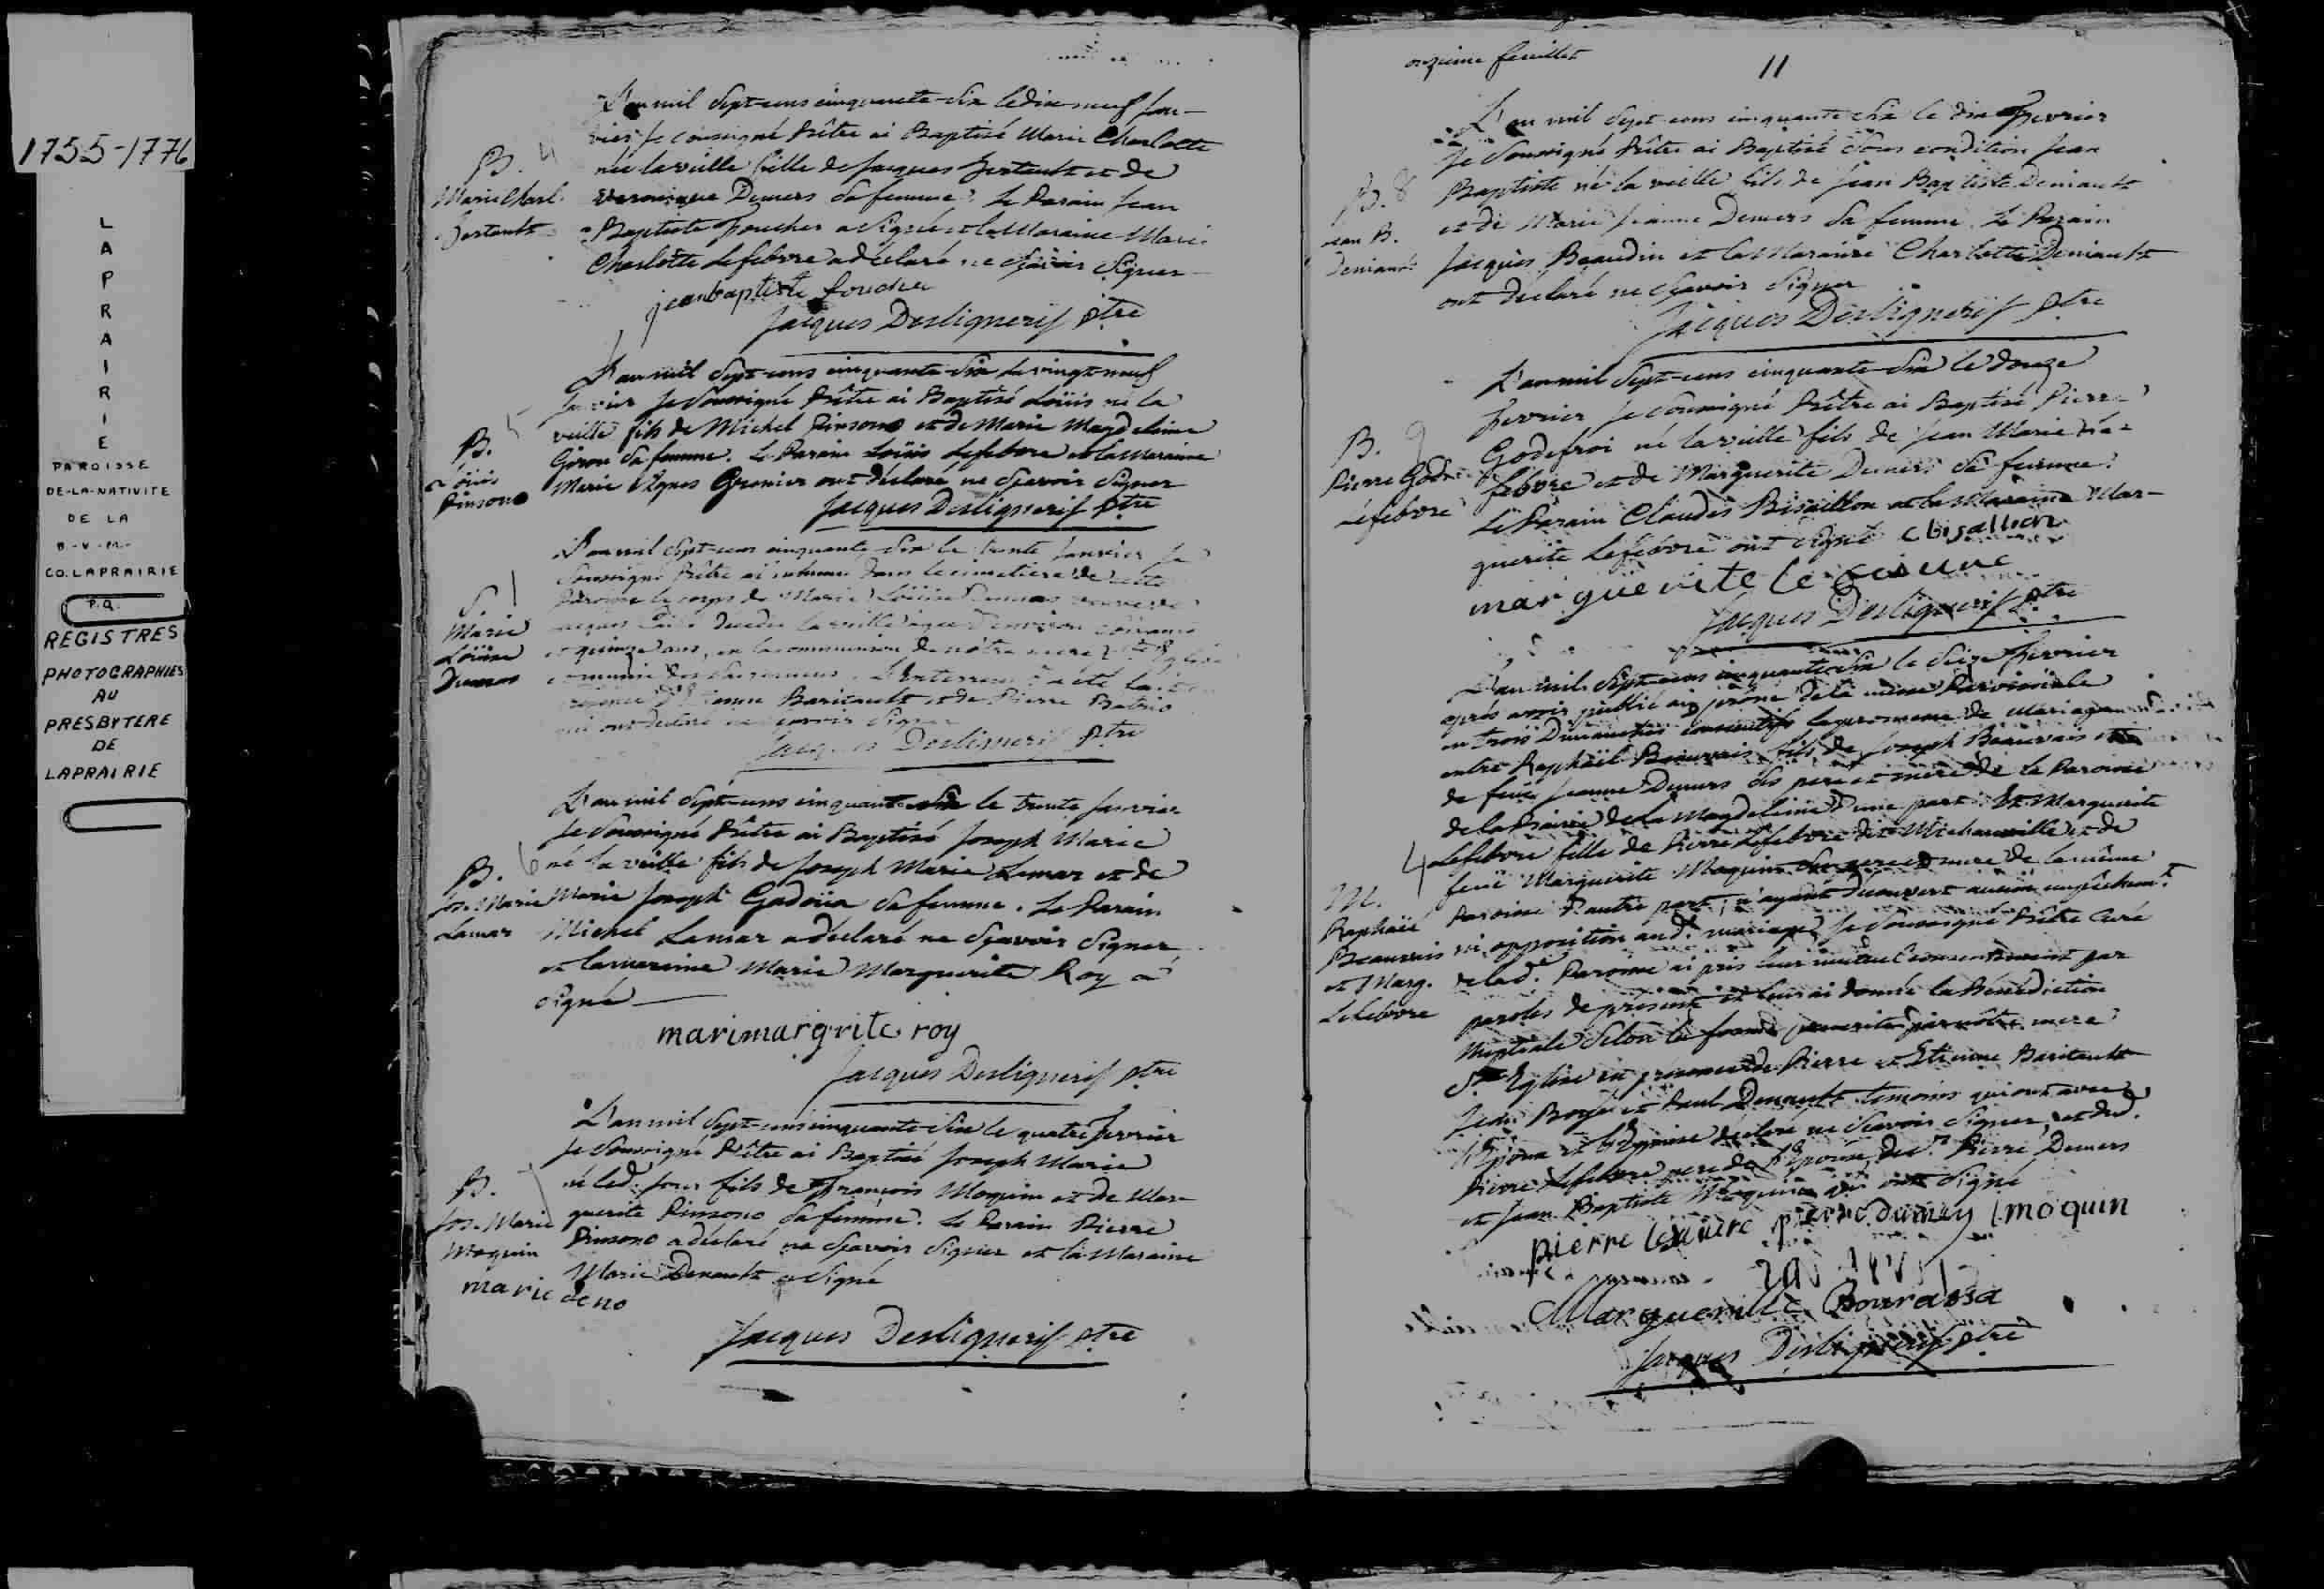 1755-1776
LAPRAIRIE
PAROISSE
DE-LA-NATIVITE
DE LA
B-V-M-
CO. LAPRAIRIE
P.Q.
REGISTRES
PHOTOGRAPHIES
AU
PRESBYTERE
DE
LAPRAIRIE
L'an mil Sept-cens cinquante-Six le dix-neuf Jan-
vier Je Soussigné Prêtre ai Baptisé Marie Charlotte
née la veille fille de Jacques et de
Veronique Demers Sa femme. Le Parain Jean
Baptiste Foucher a Signé et la Maraine Marie
Charlotte Lefebvre a déclaré ne Sçavoir Signer
B. 4
Marie Charl.
jean baptiste foucher
Jacques Desligneris ptre
L'an mil Sept-cens cinquante-Six le vingt-neuf
Janvier Je Soussigné Prêtre ai Baptisé Loüis né la
veille fils de Michel Pinsono et de Marie Magdelaine
Giron Sa femme. Le Parain Loüis Lefebvre et la Maraine
Marie Agnes Gronier ont déclaré ne Sçavoir Signer
B. 5
Loüis
Pinsono
Jacques Desligneris ptre
L'an mil Sept-cens cinquante-Six le trente Janvier Je
Soussigné Prêtre ai inhumé dans le cimetiere de cette
Paroisse le corps de Marie Loüise Dumas veuve de
Jacques decedée la veille agée d'environ Soixante
et quinze ans, en la communion de nôtre mere Ste Eglise
L'enterrement a été fait en
presence d'Etienne Baritault et de Pierre
qui ont declaré ne Sçavoir Signer
S. 1
Marie
Loüise
Dumas
Jacques Desligneris ptre
L'an mil Sept-cens cinquante-Six le trente Janvier
Je Soussigné Prêtre ai Baptisé Joseph Marie
né la veille fils de Joseph Marie Lamar et de
Marie Joseph Gadoüa Sa femme. Le Parain
Michel Lamar a déclaré ne Sçavoir Signer
et la maraine Marie Marguerite Roy a
Signé
B. 6
Jos. Marie
Lamar
marimargrite roy
Jacques Desligneris ptre
L'an mil Sept-cens cinquante-Six le quatre Fevrier
Je Soussigné Prêtre ai Baptisé Joseph Marie
né led. Jour fils de François Moquin et de Mar-
guerite Pinsono Sa femme. Le Parain Pierre
Pinsono a déclaré ne Sçavoir Signer et la Maraine
Marie Denault a Signé
B. 7
Jos. Marie
Moquin
marie deno
Jacques Desligneris ptre
onzieme feuillet
11
L'an mil Sept-cens cinquante-Six le dix Fevrier
Je Soussigné Prêtre ai Baptisé Sous condition Jean
Baptiste né la veille fils de Jean Baptiste Deniault
et de Marie Jeanne Demers Sa femme. Le Parain
Jacques Beaudin et la Maraine Charlotte Deniault
ont déclaré ne Sçavoir Signer
B. 8
Jean B.
Deniault
Jacques Desligneris ptre
L'an mil Sept-cens cinquante-Six le douze
Fevrier Je Soussigné Prêtre ai Baptisé Pierre
Godefroi né la veille fils de Jean Marie
Lefebvre et de Marguerite Demers Sa femme.
Le Parain Claude Bisaillon et la Maraine Mar-
guerite Lefebvre ont Signé
B. 9
Pierre Godf.
Lefebvre
C bisallion
margueritte le
Jacques Desligneris ptre
L'an mil Sept-cens cinquante-Six le Seize Fevrier
après avoir publié au prône de la messe Paroissiale
en trois Dimanches consecutifs la promesse de Mariage
entre Raphaël Beauvais fils de Joseph Beauvais et
de feüe Jeanne Demers Ses pere et mere de la Paroisse
de la Prairie de la Magdeleine d'une part. Et Marguerite
Lefebvre fille de Pierre Lefebvre dit et de
feüe Marguerite Moquin Ses pere et mere de la même
Paroisse d'autre part, n'ayant découvert aucun empêchemt.
ni opposition aud. mariage, Je Soussigné Prêtre Curé
de lad. Paroisse ai pris leur mutuel consentement par
paroles de présent et leur ai donné la Bénédiction
Nuptiale Selon la forme prescrite par nôtre mere
Ste Eglise en présence de Pierre et Etienne Baritault
Jean Boyer et Paul Denault temoins qui ont avec
l'Epoux et l'Epouse déclaré ne Sçavoir Signer, et dud.
Pierre Lefebvre pere de l'Epouse, de Pierre Demers
et Jean Baptiste Moquin qui ont Signé
M. 4
Raphaël
Beauvais
et Marg.
Lefebvre
pierre lefevre pierre dumay J moquin
Margueritte Bourassa
Jacques Desligneris ptre